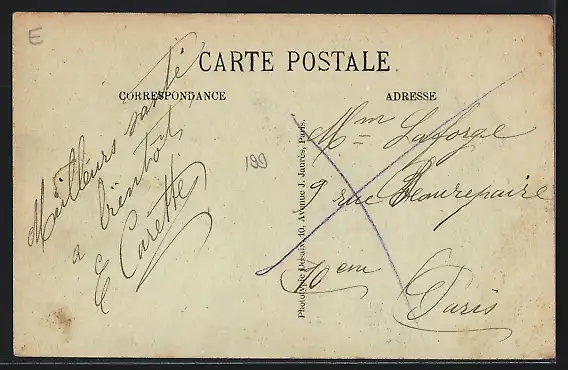 E
CARTE POSTALE
CORRESPONDANCE
ADRESSE
Meilleurs santé
a bientôt
E Carette
199
Phototypie Desaix, 40, Avenue J. Jaurès, Paris.
Mme Laforge
9 rue Beaurepaire
10em
Paris